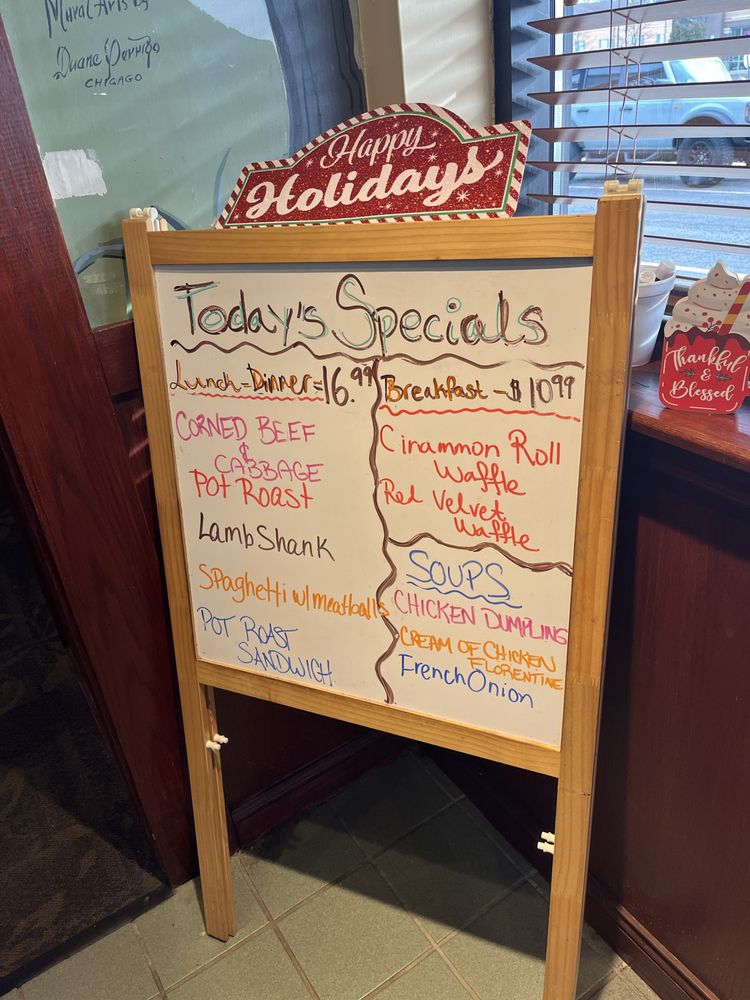 Mural Arts by
Duane Perrigo
CHICAGO
Happy
Holidays
Today's Specials
Lunch-Dinner=16.99
CORNED BEEF
&
CABBAGE
Pot Roast
Lamb Shank
Spaghetti w/ meatballs
POT ROAST
SANDWICH
Breakfast - $10.99
Cinammon Roll
Waffle
Red Velvet
Waffle
SOUPS
CHICKEN DUMPLING
CREAM OF CHICKEN
FLORENTINE
French Onion
Thankful
&
Blessed